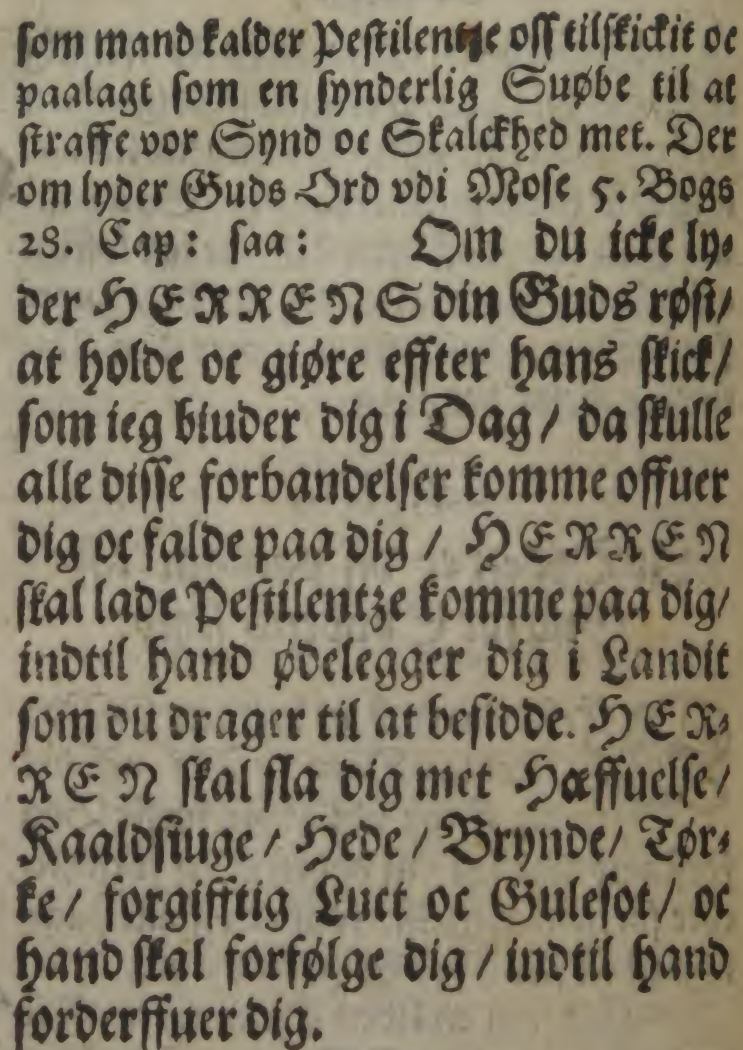 som mand kalder Pestilentze oss tilskickit oc
paalagt som en synderlig Suøbe til at
straffe vor Synd oc Skalckhed met. Der
om lyder Guds Ord vdi Mose 5. Bogs
28. Cap: saa: Om du icke ly-
der HERRENS din Guds røst/
at holde oc giøre effter hans skick/
som ieg biuder dig i Dag / da skulle
alle disse forbandelser komme offuer
dig oc falde paa dig / HERREN
skal lade Pestilentze komme paa dig/
indtil hand ødelegger dig i Landit
som du drager til at besidde. HER-
REN skal sla dig met Hæffuelse/
Kaaldsiuge / Hede / Brynde/ Tør-
ke/ forgifftig Luct oc Gulesot/ oc
hand skal forfølge dig / indtil hand
forderffuer dig.